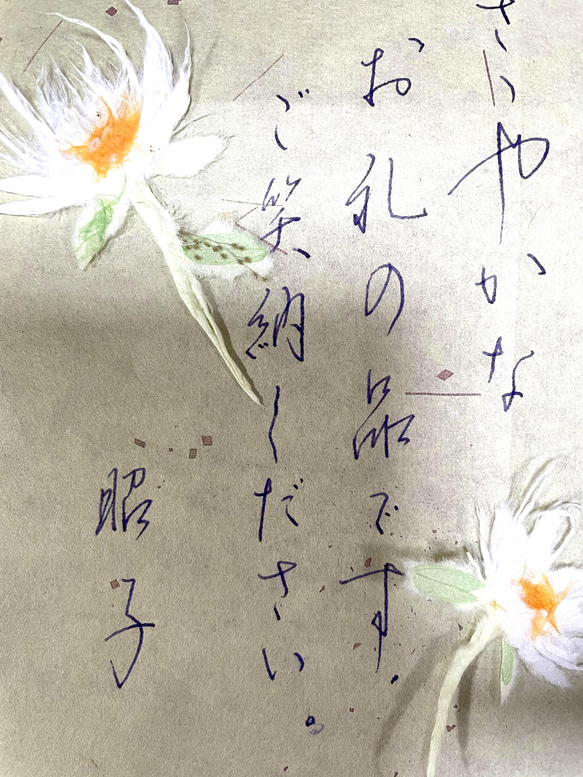 さゝやかな
お礼の品です.
ご笑納ください。
昭子